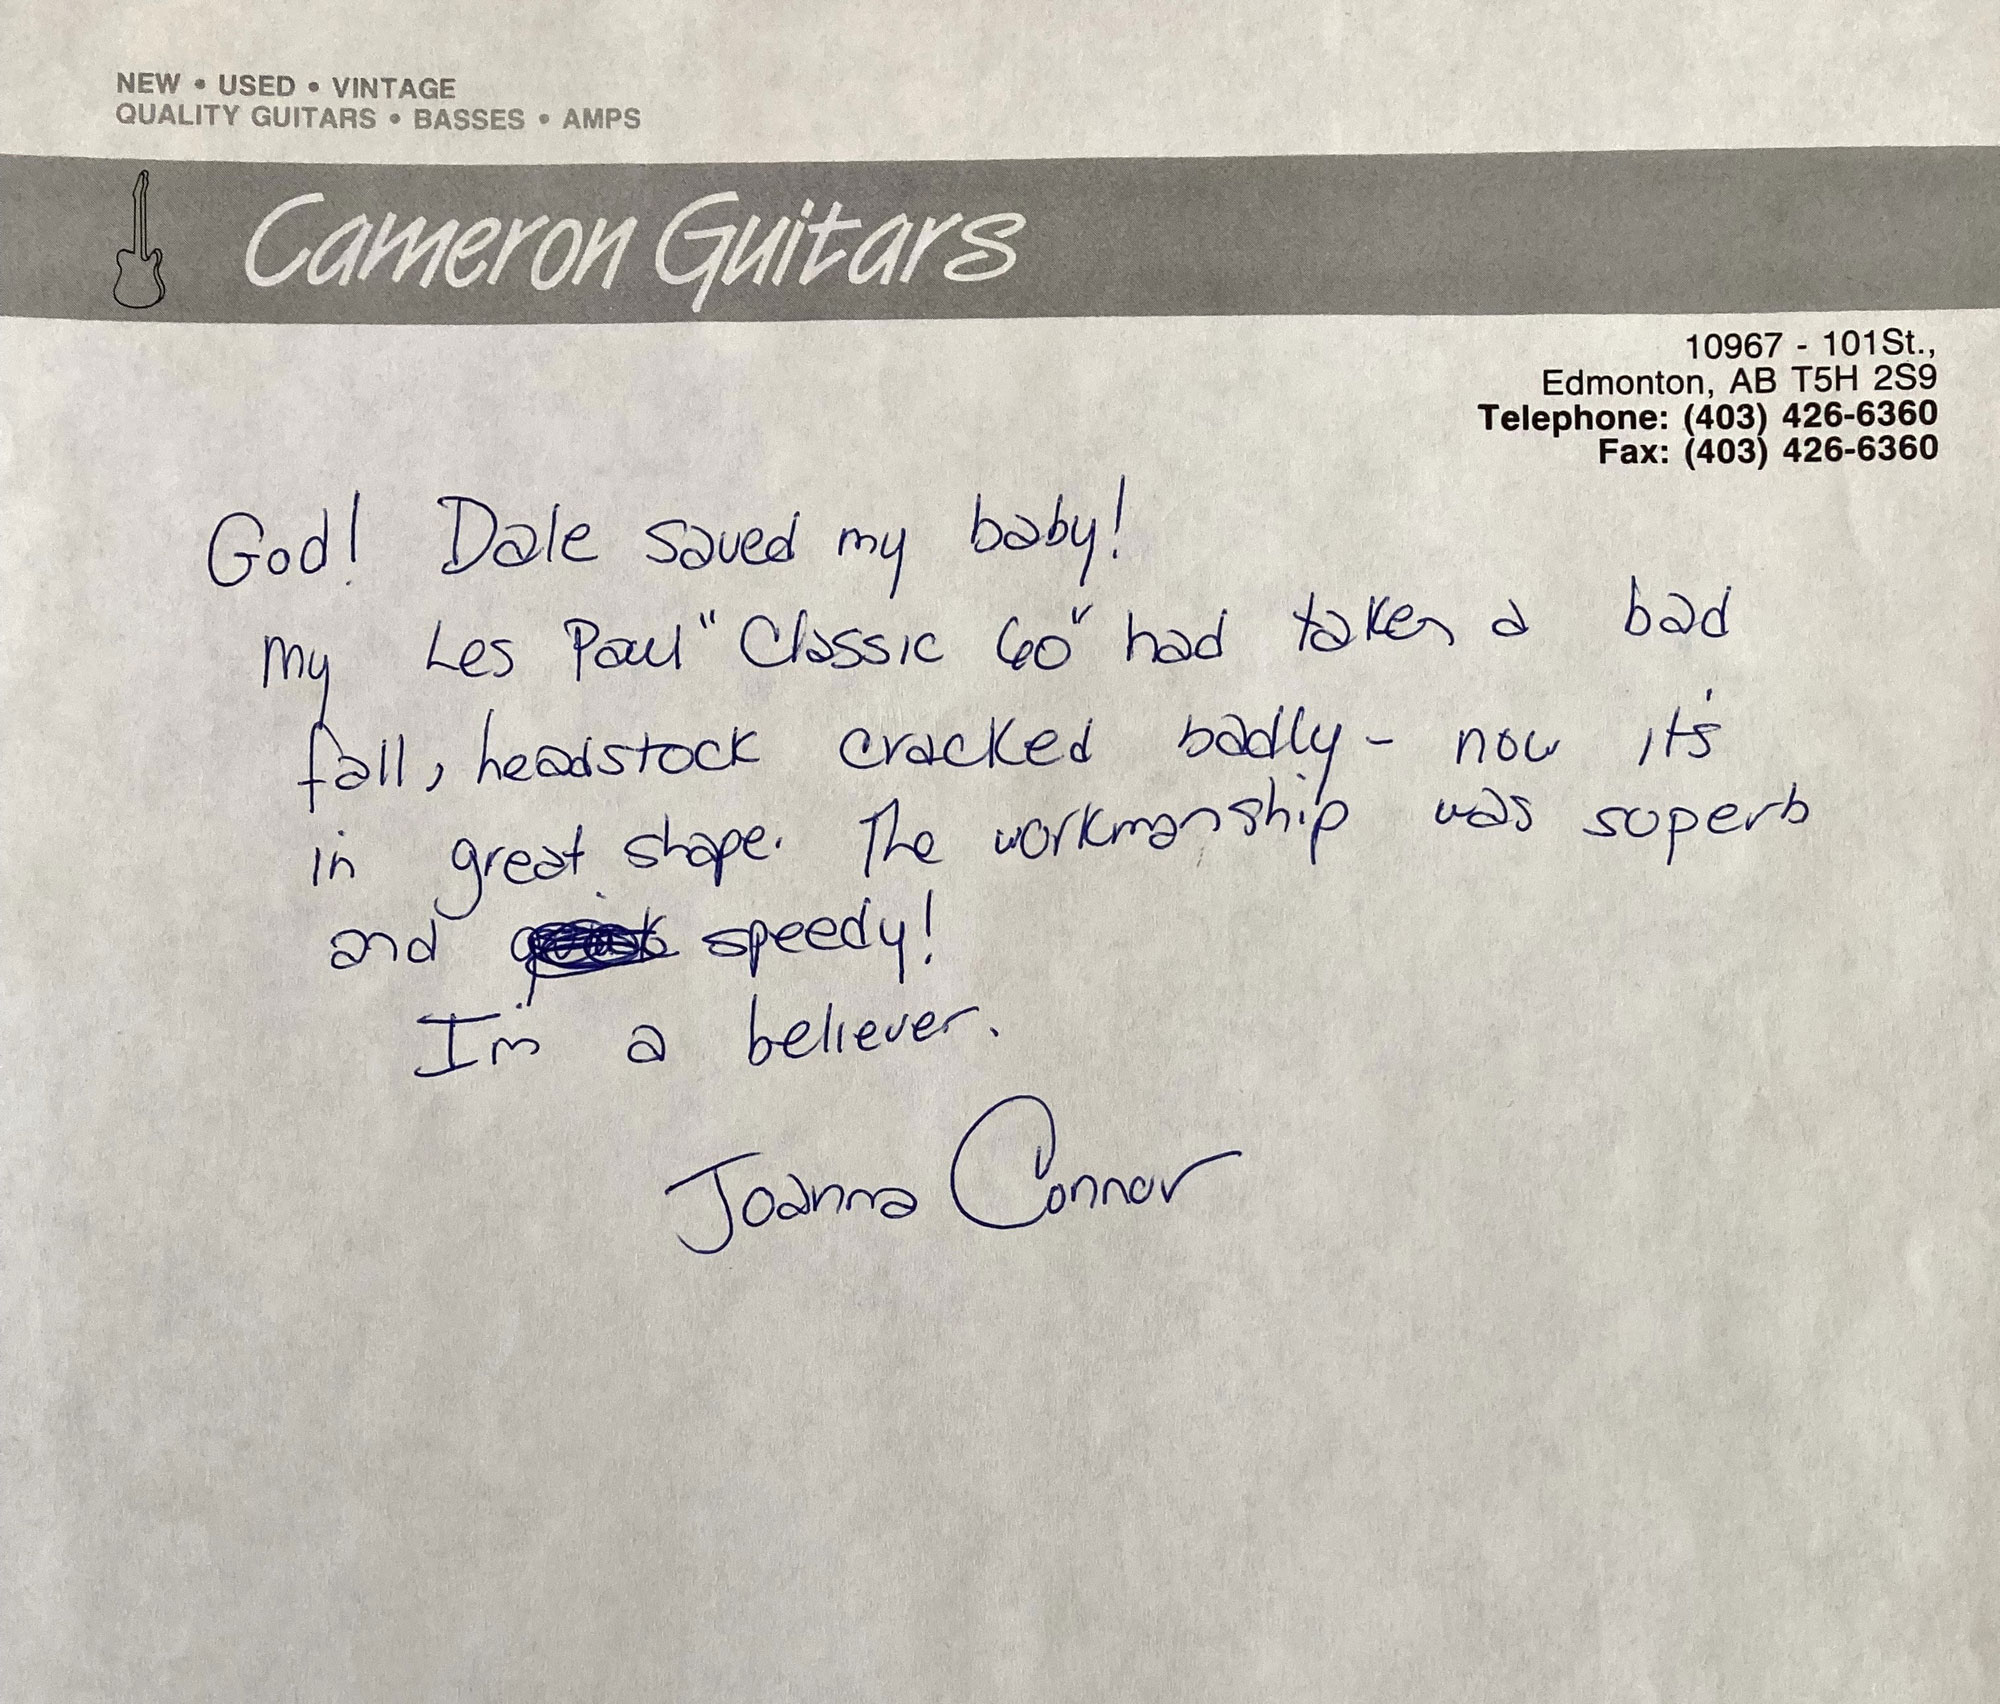 NEW • USED • VINTAGE
QUALITY GUITARS • BASSES • AMPS
Cameron Guitars
10967 - 101St.,
Edmonton, AB T5H 2S9
Telephone: (403) 426-6360
Fax: (403) 426-6360
God! Dale saved my baby!
My Les Paul "Classic 60" had taken a bad
fall, headstock cracked badly - now it's
in great shape. The workmanship was superb
and speedy!
I'm a believer.
Joanna Connor